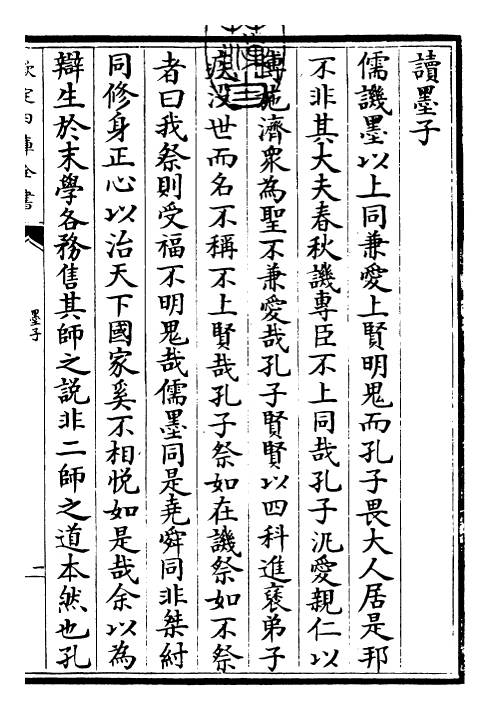 讀墨子
儒譏墨以上同兼愛上賢明鬼而孔子畏大人居是邦
不非其大夫春秋譏專臣不上同哉孔子汎愛親仁以
博施濟衆為聖不兼愛哉孔子賢賢以四科進襃弟子
疾沒世而名不稱不上賢哉孔子祭如在譏祭如不祭
者曰我祭則受福不明鬼哉儒墨同是堯舜同非桀紂
同修身正心以治天下國家奚不相悅如是哉余以為
辯生於末學各務售其師之說非二師之道本然也孔
欽定四庫全書
墨子
二